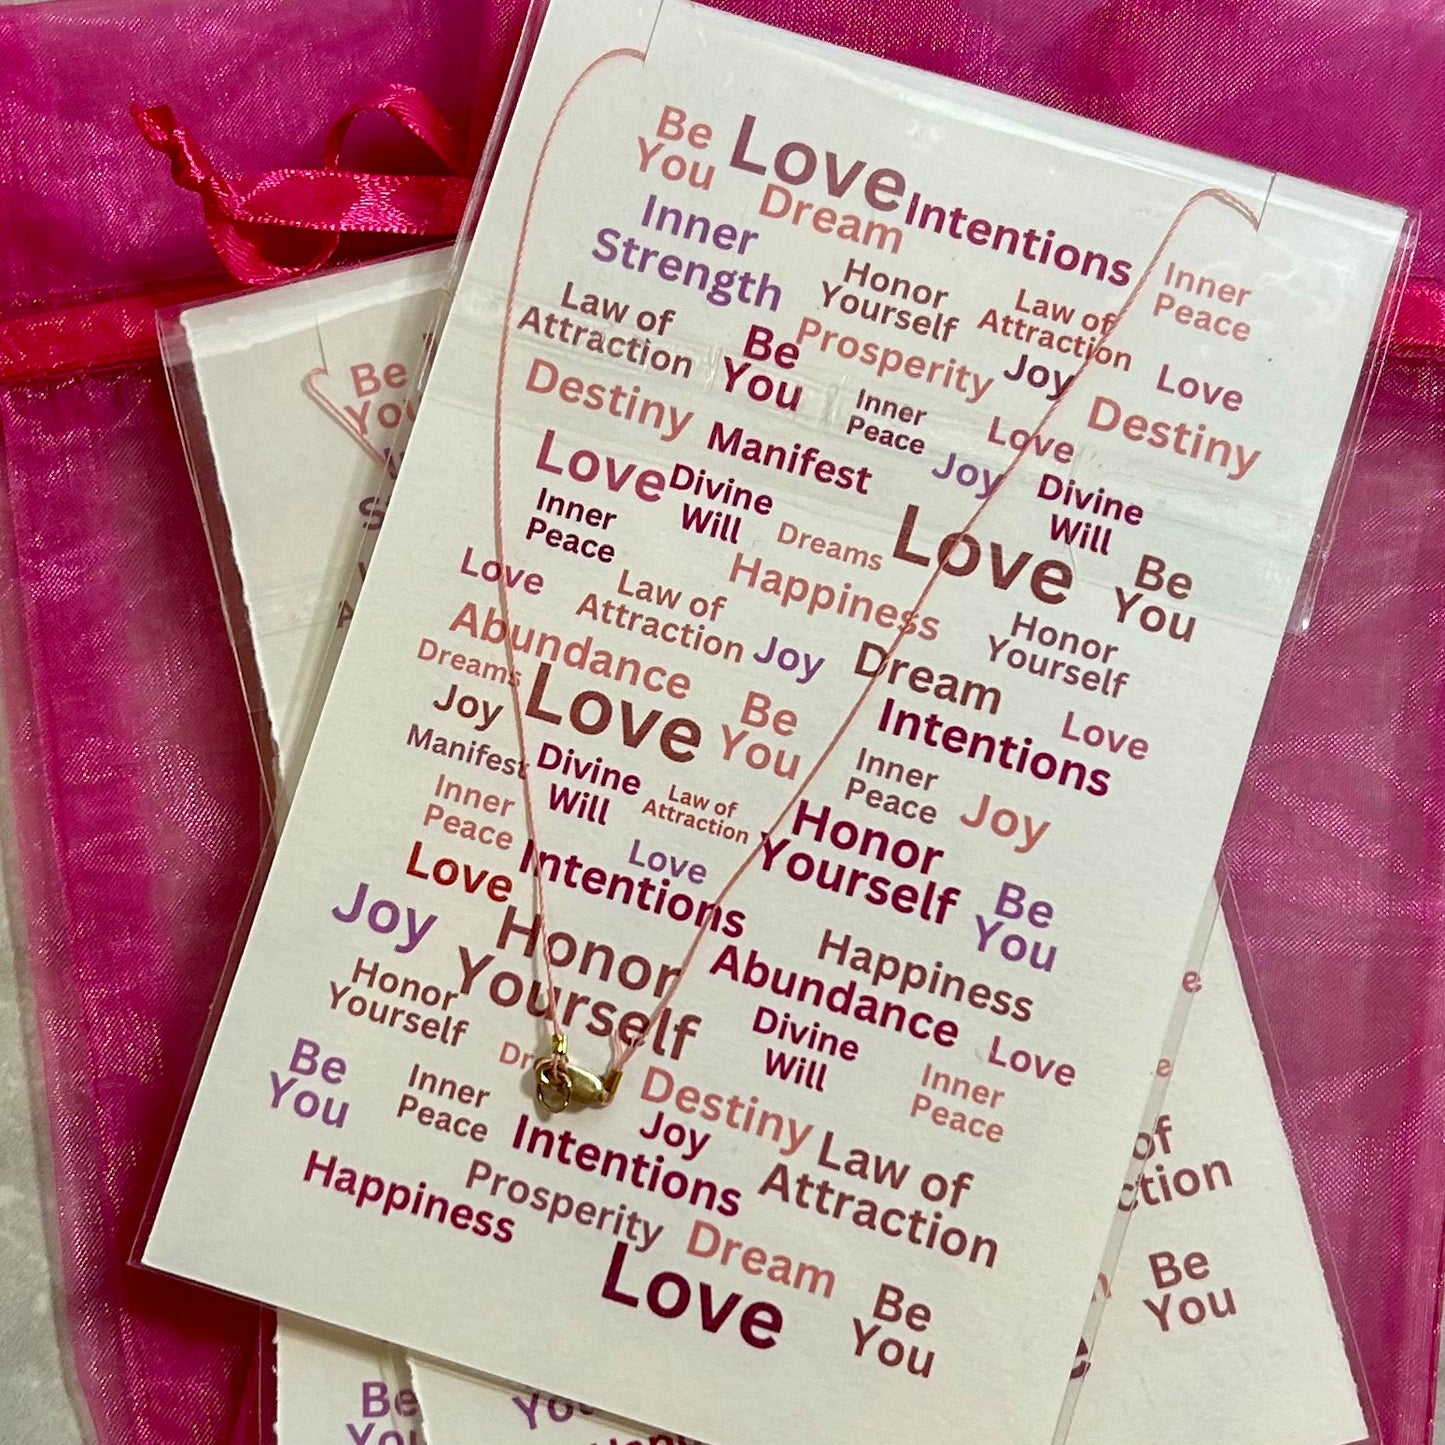 Be
You
Love
Intentions
Dream
Inner
Strength
Honor
Yourself
Law of
Attraction
Inner
Peace
Law of
Attraction
Be
You
Prosperity
Joy
Love
Destiny
Manifest
Inner
Peace
Love
Destiny
Love
Divine
Will
Joy
Divine
Will
Inner
Peace
Dreams
Love
Be
You
Love
Law of
Attraction
Happiness
Honor
Yourself
Abundance
Joy
Dream
Dreams
Love
Be
You
Intentions
Love
Joy
Manifest
Divine
Will
Law of
Attraction
Inner
Peace
Joy
Inner
Peace
Love
Honor
Yourself
Love
Intentions
Be
You
Joy
Honor
Yourself
Abundance
Happiness
Honor
Yourself
Divine
Will
Love
Be
You
Inner
Peace
Destiny
Inner
Peace
Intentions
Joy
Law of
Attraction
Happiness
Prosperity
Dream
Love
Be
You
Be
of
Be
You
Be